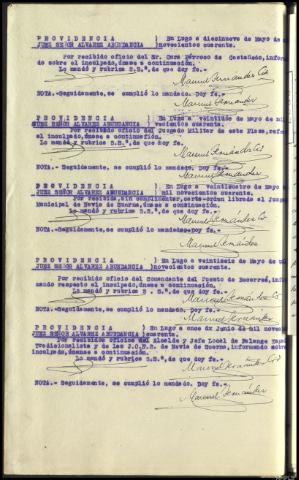 PROVIDENCIA ) En Lugo a diecinueve de Mayo de
JUEZ SEÑOR ALVAREZ ABUNDANCIA ) novecientos cuarenta.
Por recibido oficio del Sr. Cura Párroco de Castañedo, infor
sobre el inculpado, únase a continuación.
Lo mandó y rubrica S.Sª, de que doy fe.-
Manuel Fernández
NOTA.-Seguidamente, se cumplió lo mandado. Doy fe.-
Manuel Fernández
PROVIDENCIA ) En Lugo a veintidos de Mayo de mil
JUEZ SEÑOR ALVAREZ ABUNDANCIA ) novecientos cuarenta.
Por recibido oficio del Juzgado Militar de esta Plaza, refe
al inculpado, únase a continuación.
Lo mandó y rubrica S.Sª, de que doy fe.-
Manuel Fernández
NOTA.-Seguidamente, se cumplió lo mandado. Doy fe.-
Manuel Fernández
PROVIDENCIA ) En Lugo a veintiseis de Mayo
JUEZ SEÑOR ALVAREZ ABUNDANCIA ) mil novecientos cuarenta.
Por recibida, sin cumplimentar, carta-orden librada al Juzgad
Municipal de Navia de Suarna, únase a continuación.
Lo mandó y rubrica S.Sª, de que doy fe.-
Manuel Fernández
NOTA.-Seguidamente, se cumplió lo mandado. Doy fe.-
Manuel Fernández
PROVIDENCIA ) En Lugo a veintisiete de Mayo de
JUEZ SEÑOR ALVAREZ ABUNDANCIA ) novecientos cuarenta.
Por recibido oficio del Comandante del Puesto de Becerreá, infor
mando respecto al inculpado, únase a continuación.
Lo mandó y rubrica S. Sª, de que doy fe.-
Manuel Fernández
NOTA.-Seguidamente, se cumplió lo mandado. Doy fe.-
Manuel Fernández
PROVIDENCIA ) En Lugo a once de Junio de mil novec
JUEZ SEÑOR ALVAREZ ABUNDANCIA ) cuarenta.
Por recibidos oficios del Alcalde y Jefe Local de Falange Espa
Tradicionalista y de las J.O.N.S. de Navia de Suarna, informando sobre
inculpado, únase a continuación.
Lo mandó y rubrica S.Sª, de que doy fe.-
Manuel Fernández
NOTA.-Seguidamente, se cumplió lo mandado. Doy fe.-
Manuel Fernández